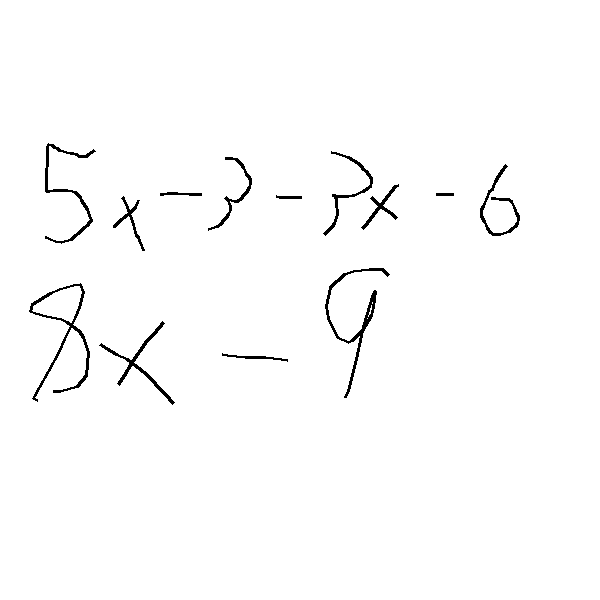 5x - 3 - 3x - 6
8x - 9